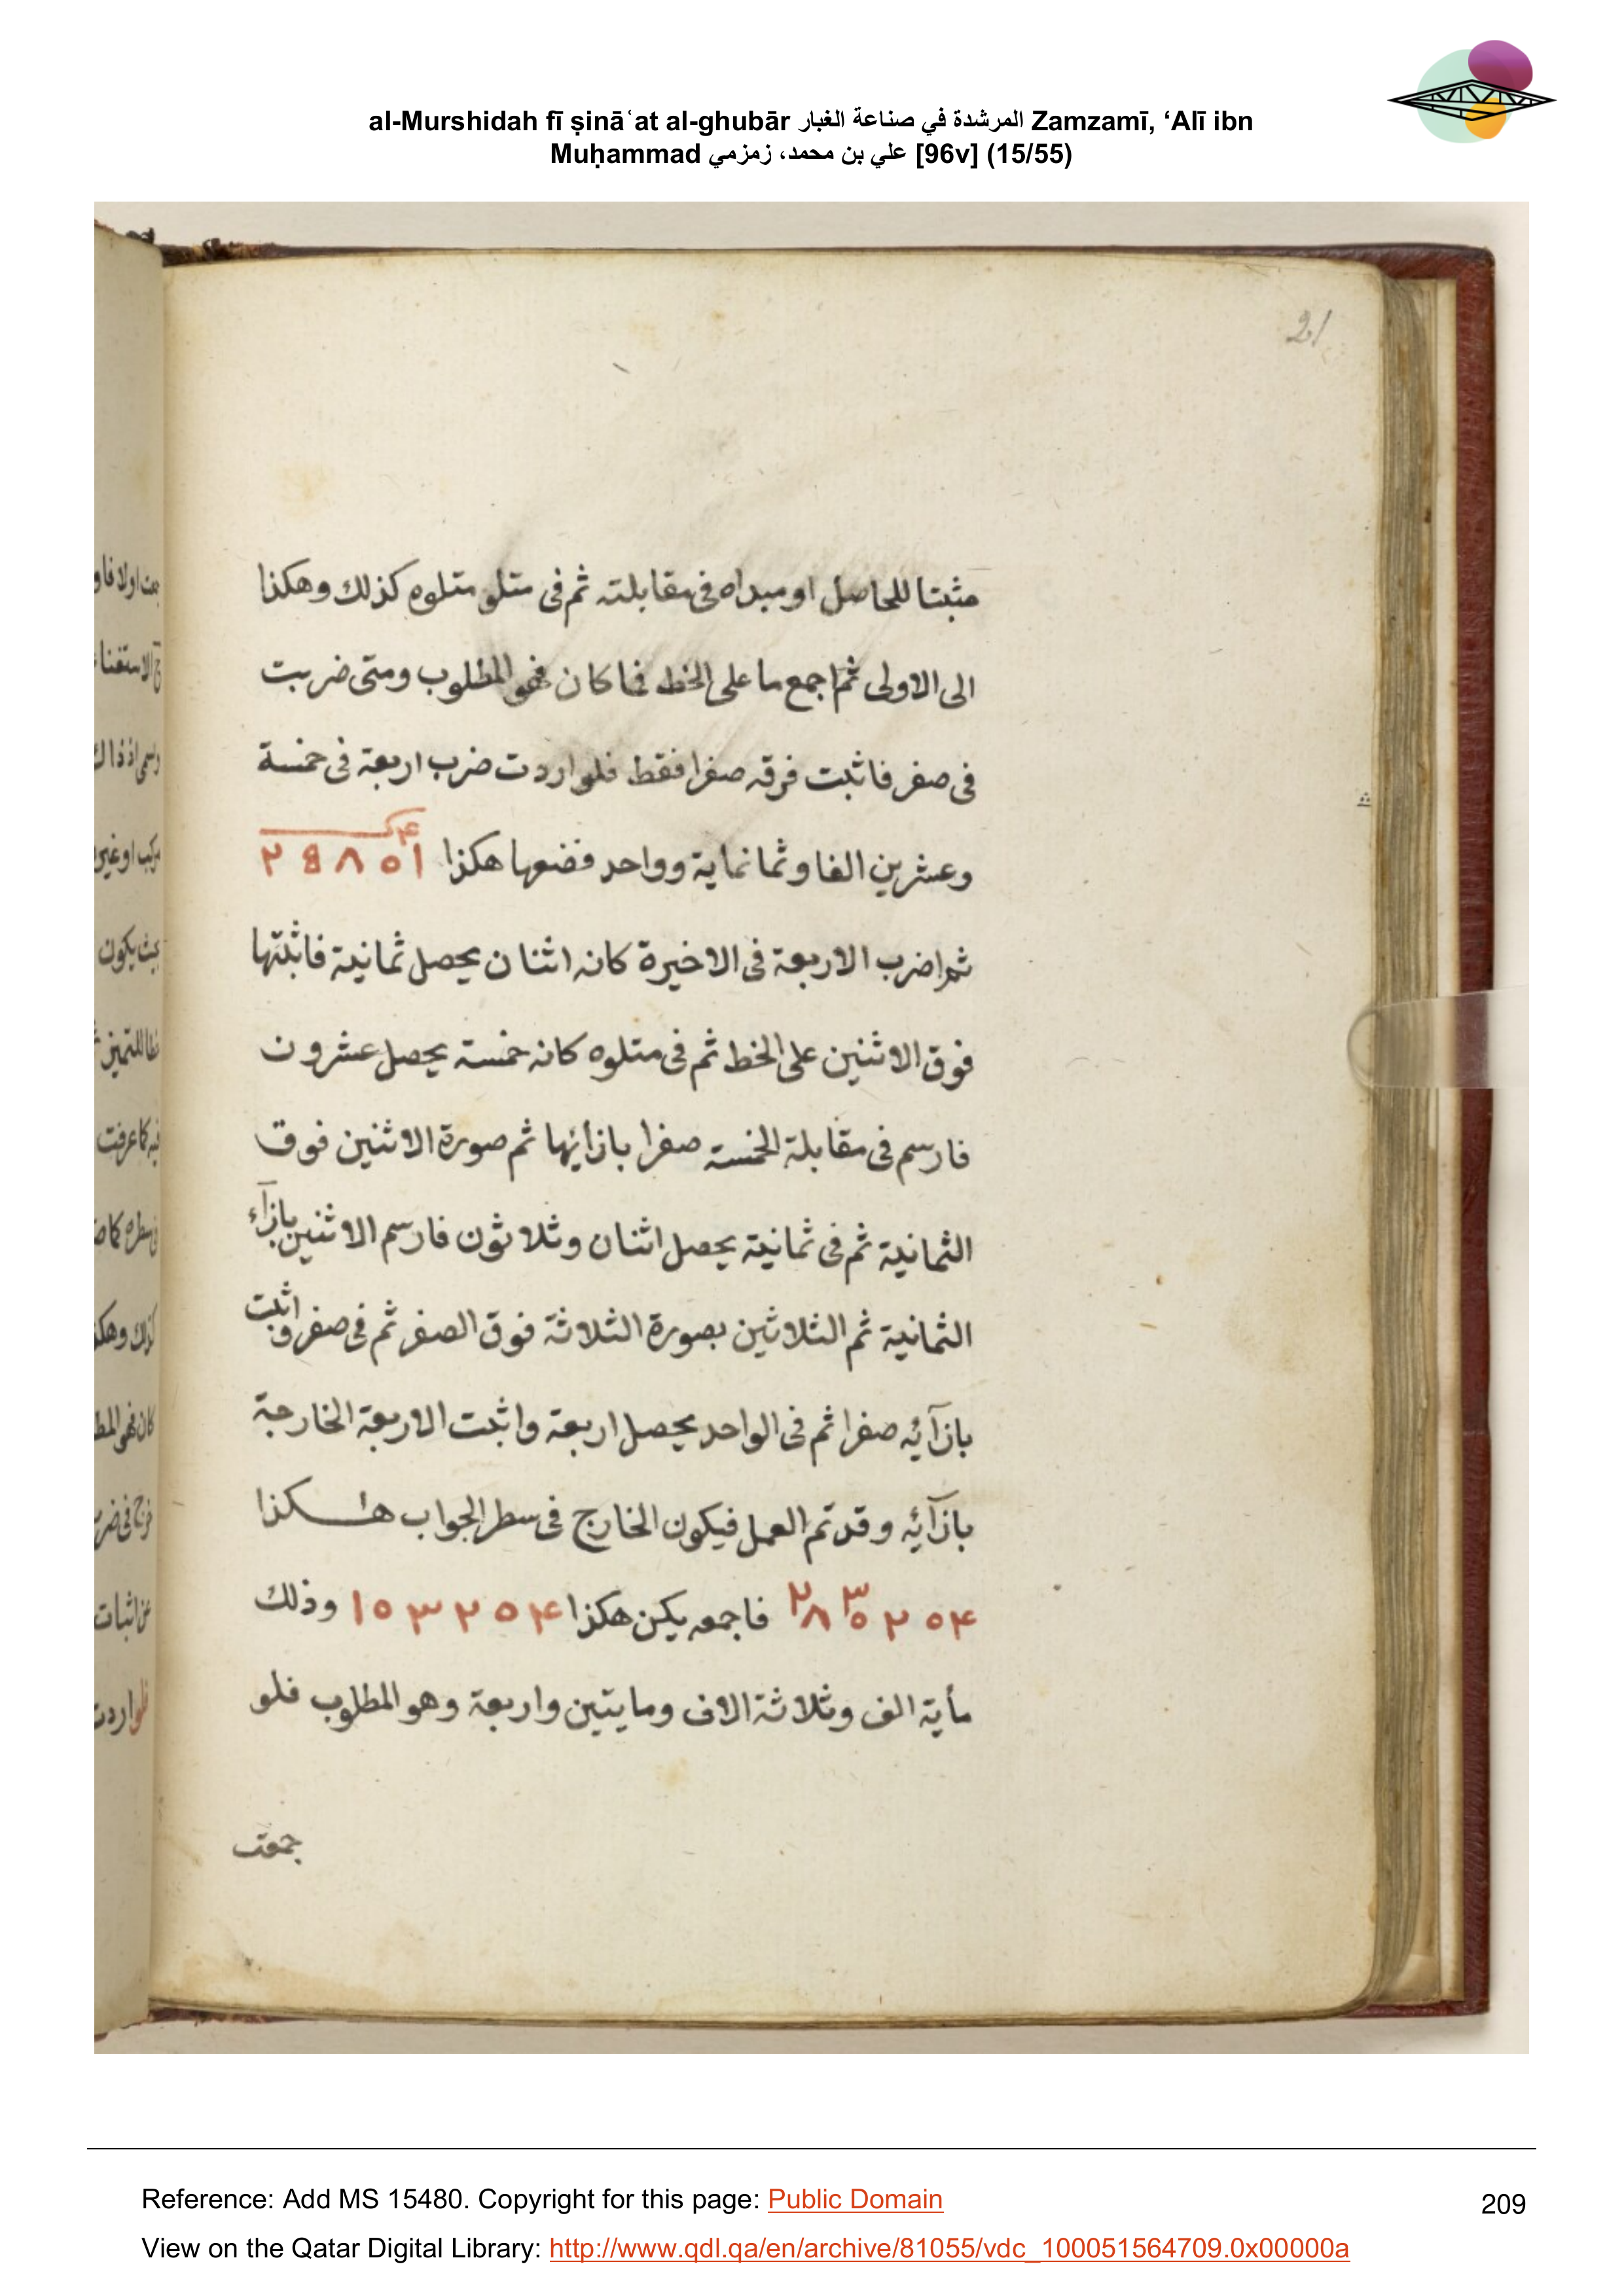 al-Murshidah fī ṣināʿat al-ghubār المرشدة في صناعة الغبار Zamzamī, ‘Alī ibn
Muḥammad علي بن محمد، زمزمي [96v] (15/55)
21
مثبتا للحاصل او مبداه فى مقابلته ثم فى متلو متلوه كذلك وهكذا
الى الاولى ثم اجمع ما على الخط فما كان فهو المطلوب ومتى ضربت
فى صفر فاثبت فوقه صفرا فقط فلو اردت ضرب اربعة فى خمسة
وعشرين الفا وثمانماية وواحد فضعها هكذا
ثم اضرب الاربعة فى الاخيرة كانه اثنان يحصل ثمانية فاثبتها
فوق الاثنين على الخط ثم فى متلوه كانه خمسة يحصل عشرون
فارسم فى مقابلة الخمسة صفرا بازائها ثم صورة الاثنين فوق
الثمانية ثم فى ثمانية يحصل اثنان وثلاثون فارسم الاثنين بازآء
الثمانية ثم الثلاثين بصورة الثلاثة فوق الصفر ثم فى صفر واثبت
بازآئه صفرا ثم فى الواحد يحصل اربعة واثبت الاربعة الخارجة
بازآئه وقد تم العمل فيكون الخارج فى سطر الجواب هكذا
فاجمعه يكن هكذا ١٥٣٢٥۴ وذلك
مأية الف وثلاثة الاف ومايتين واربعة وهو المطلوب فلو
جمعت
Reference: Add MS 15480. Copyright for this page: Public Domain
209
View on the Qatar Digital Library: http://www.qdl.qa/en/archive/81055/vdc_100051564709.0x00000a